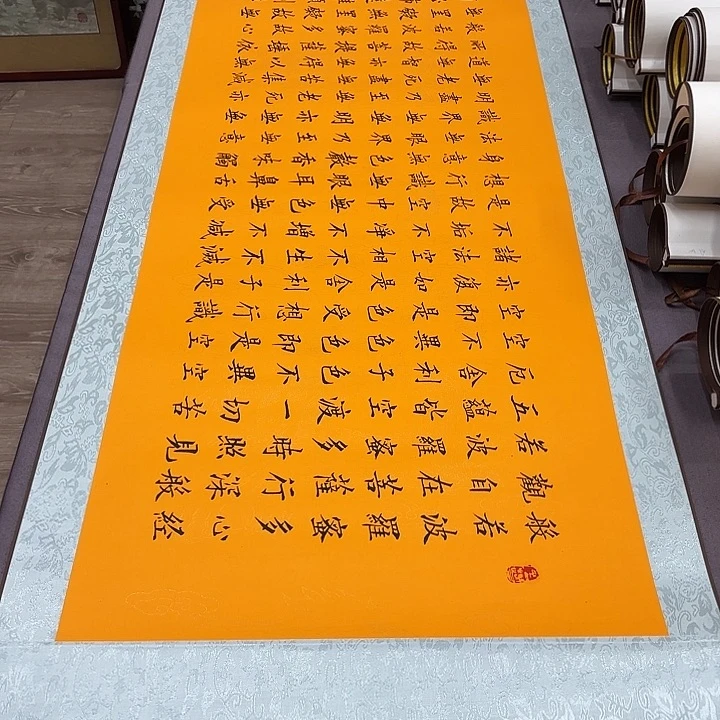 般若波羅蜜多心経
觀自在菩薩行深般
若波羅蜜多時照見
五蘊皆空渡一切苦
厄舍利子色不異空
空不異色色即是空
空即是色受想行識
亦復如是舍利子是
諸法空相不生不滅
不垢不淨不增不減
是故空中無色無受
想行識無眼耳鼻舌
身意無色聲香味觸
法無眼界乃至無意
識界無無明亦無無
明盡乃至無老死亦
無老死盡無苦集滅
道無智亦無得以無
所得故菩提薩埵依
般若波羅蜜多故心